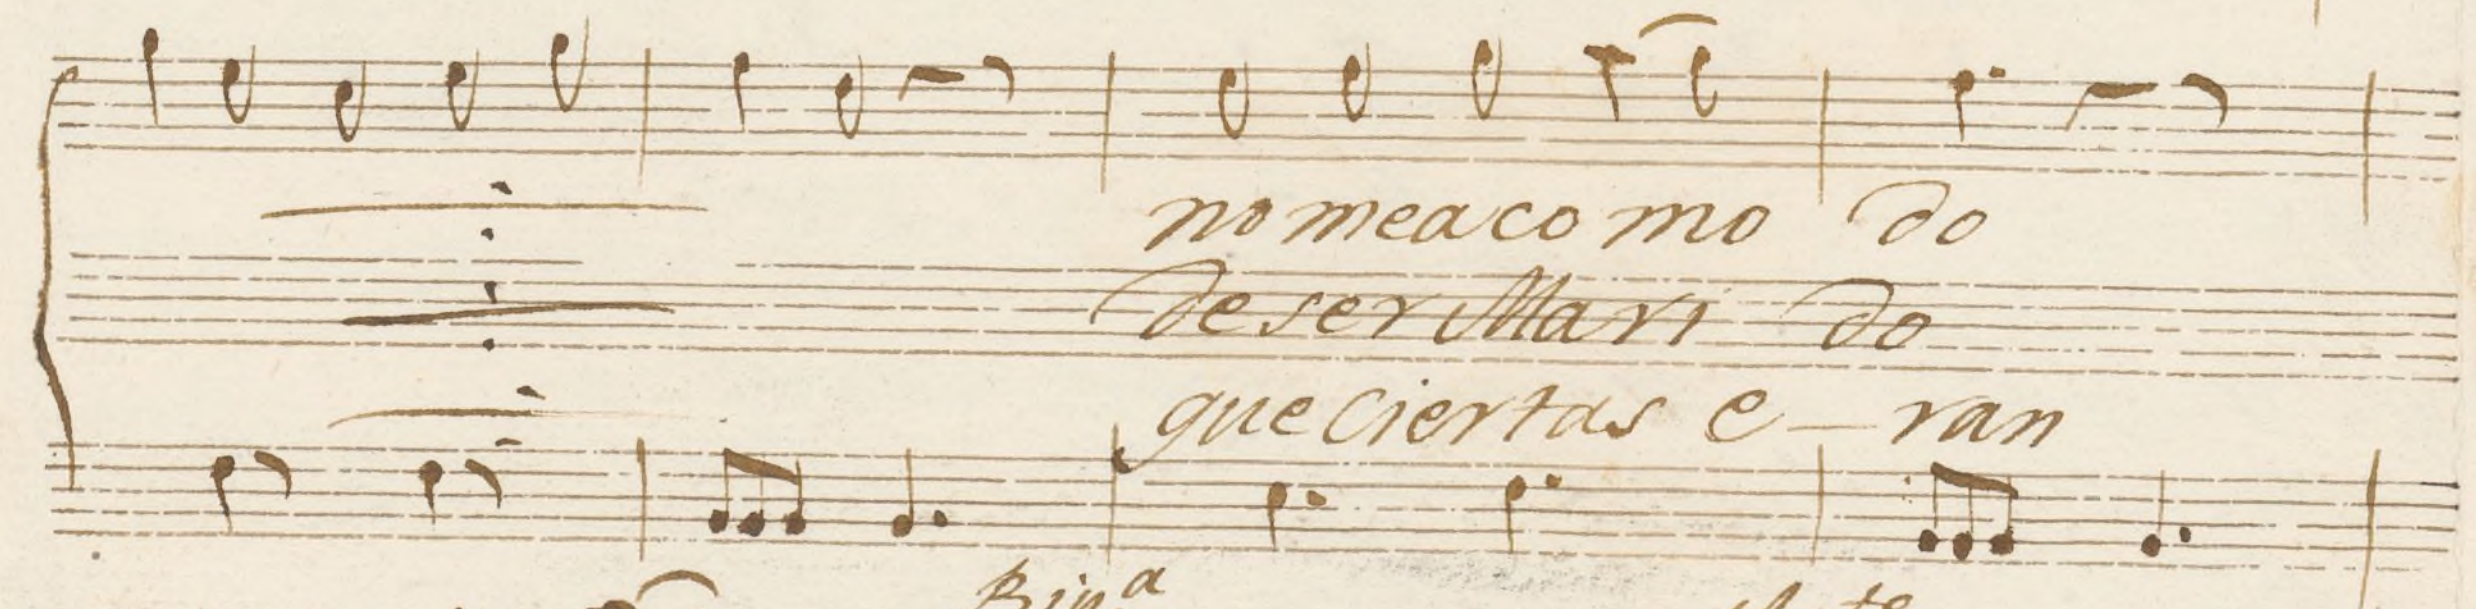 no me aco mo do
de ser Mari do
que Ciertas e - ran